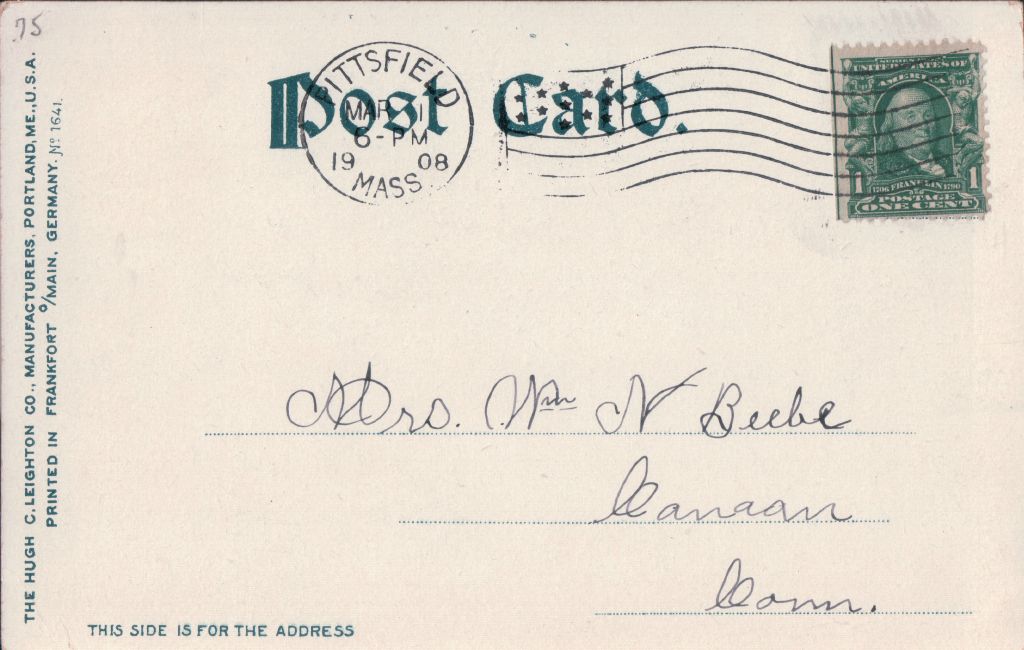 75
Post Card.
PITTSFIELD
MAR 1
6-PM
1908
MASS
SERIES 1902
UNITED STATES OF
AMERICA
1706 FRANKLIN 1790
POSTAGE
1 ONE CENT 1
Mrs. Wm N Beebe
Canaan
Conn.
THE HUGH C. LEIGHTON CO., MANUFACTURERS, PORTLAND, ME., U.S.A.
PRINTED IN FRANKFORT o/MAIN, GERMANY. No 1641.
THIS SIDE IS FOR THE ADDRESS